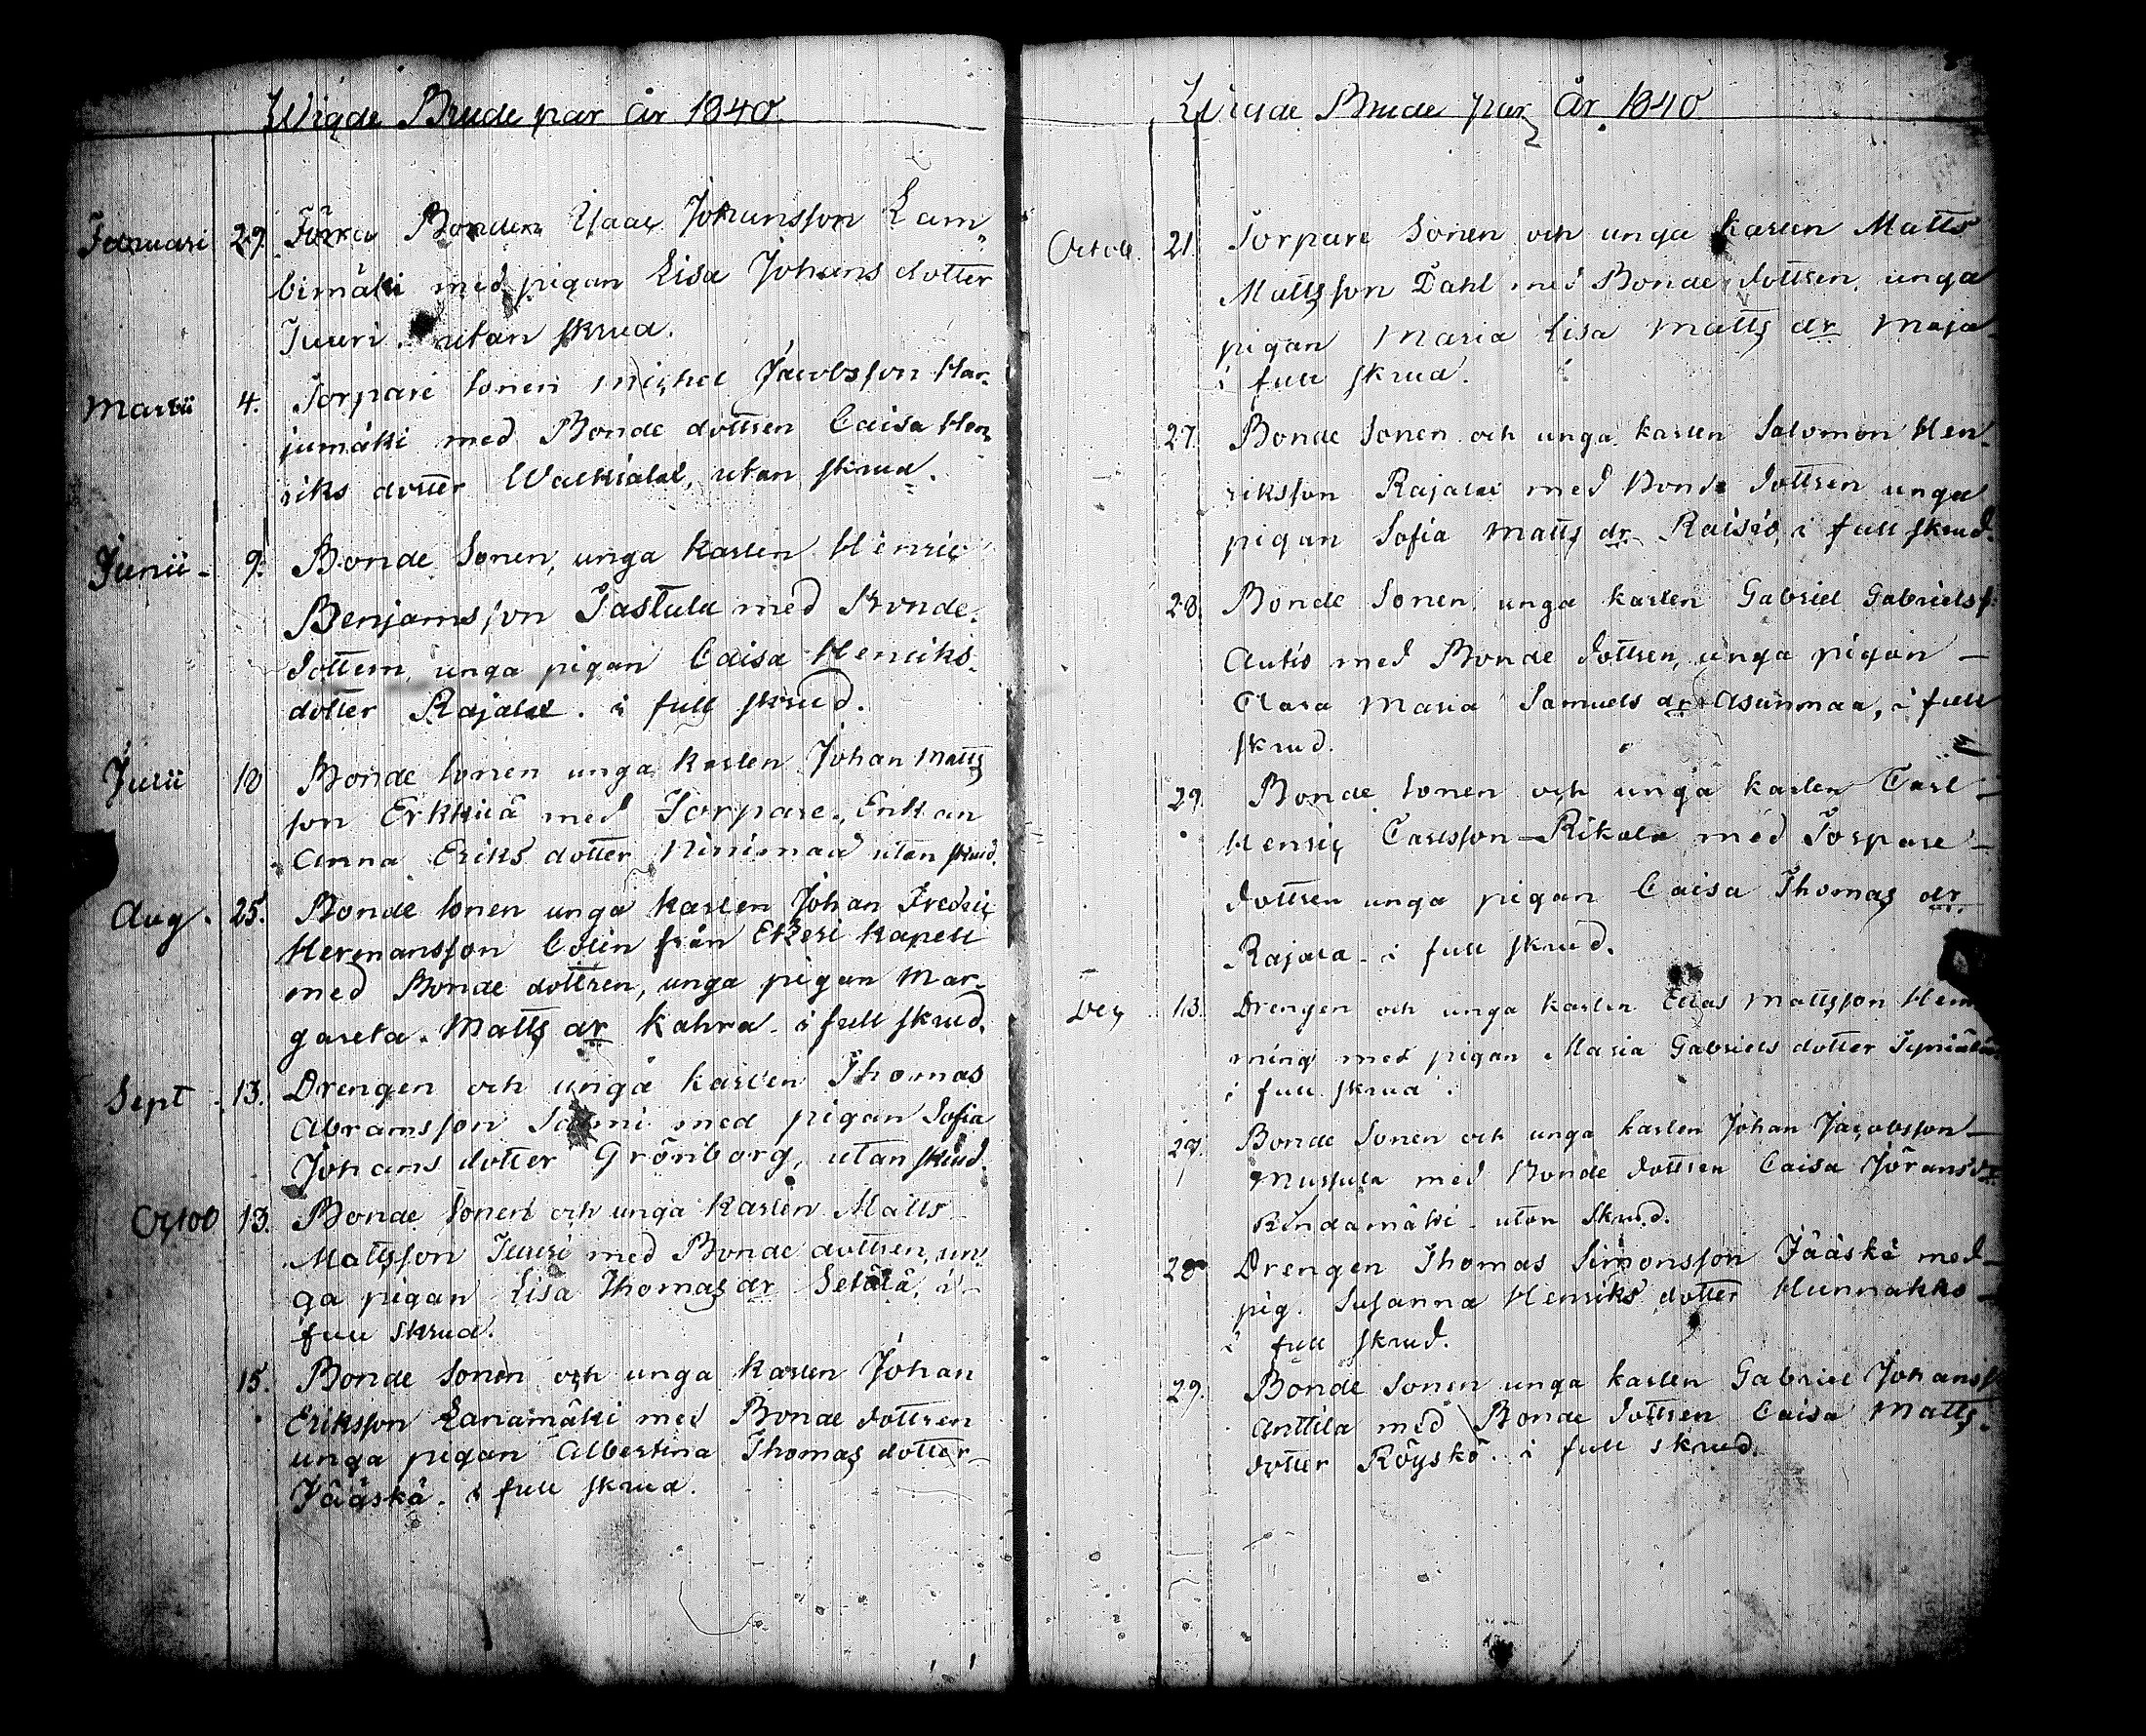 Wigde Brude par år 1840.
Januari 29. Förra Bonden Isaac Johansson Lam„
bimäki med pigan Lisa Johans dotter
Juuri. utan skrud.
Martii 4. Torpare Sonen Michel Jacobsson Har„
jumäki med Bonde dottren Caisa Hen„
riks dotter Walkiala, utan skrud.
Junii 9. Bonde Sonen, unga Karlen Henric
Benjamsson Tastula med Bonde„
dottern, unga pigan Caisa Henriks„
dotter Rajala. i full skrud.
Julii 10 Bonde Sonen unga Karlen Johan Matts
son Erkkilä med Torpare Enkan
Anna Eriks dotter Niinimaa utan skrud.
Aug. 25. Bonde Sonen unga Karlen Johan Fredric
Hermansson Colin från Etzeri Kapell
med Bonde dottren, unga pigan Mar„
gareta Matts dr Kahra. i full skrud.
Sept. 13. Drengen och unga Karlen Thomas
Abramsson med pigan Sofia
Johans dotter Grönborg, utan skrud.
Octob 13. Bonde Sonen och unga Karlen Matts
Mattsson Juuri med Bonde dottren, un„
ga pigan Lisa Thomas dr Setälä, i
full skrud.
15. Bonde Sonen och unga Karlen Johan
Eriksson Lanamäki med Bonde dottren
unga pigan Albertina Thomas dotter
Jääskä. i full skrud.
Wigde Brude par År 1840.
Octob. 21. Torpare Sonen och unga Karlen Matts
Mattsson Dahl med Bonde dottren, unga
pigan Maria Lisa Matts dr Maja
i full skrud.
27. Bonde Sonen och unga Karlen Salomon Hen„
riksson Rajala med Bonde dottren unga
pigan Sofia Matts dr Raisio, i full skrud.
28. Bonde Sonen unga Karlen Gabriel Gabrielss:
Autio med Bonde dottren, unga pigan
Clara Maria Samuels dr Asunmaa, i full
skrud.
29. Bonde Sonen och unga Karlen Carl
Henric Carlsson Rikala med Torpare
dottren unga pigan Caisa Thomas dr
Rajala. i full skrud.
Dec 13. Drengen och unga Karlen Elias Mattsson Hem
ming med pigan Maria Gabriels dotter
i full skrud.
27. Bonde Sonen och unga Karlen Johan Jacobsson
Mustula med Bonde dottren Caisa Jörans dr
Rindamäki. utan skrud.
28. Drengen Thomas Simonsson Jääskä med
pig. Susanna Henriks dotter Hunnakko
i full skrud.
29. Bonde Sonen unga Karlen Gabriel Johanss
Anttila med Bonde dottren Caisa Matts
dotter Röyskö. i full skrud.